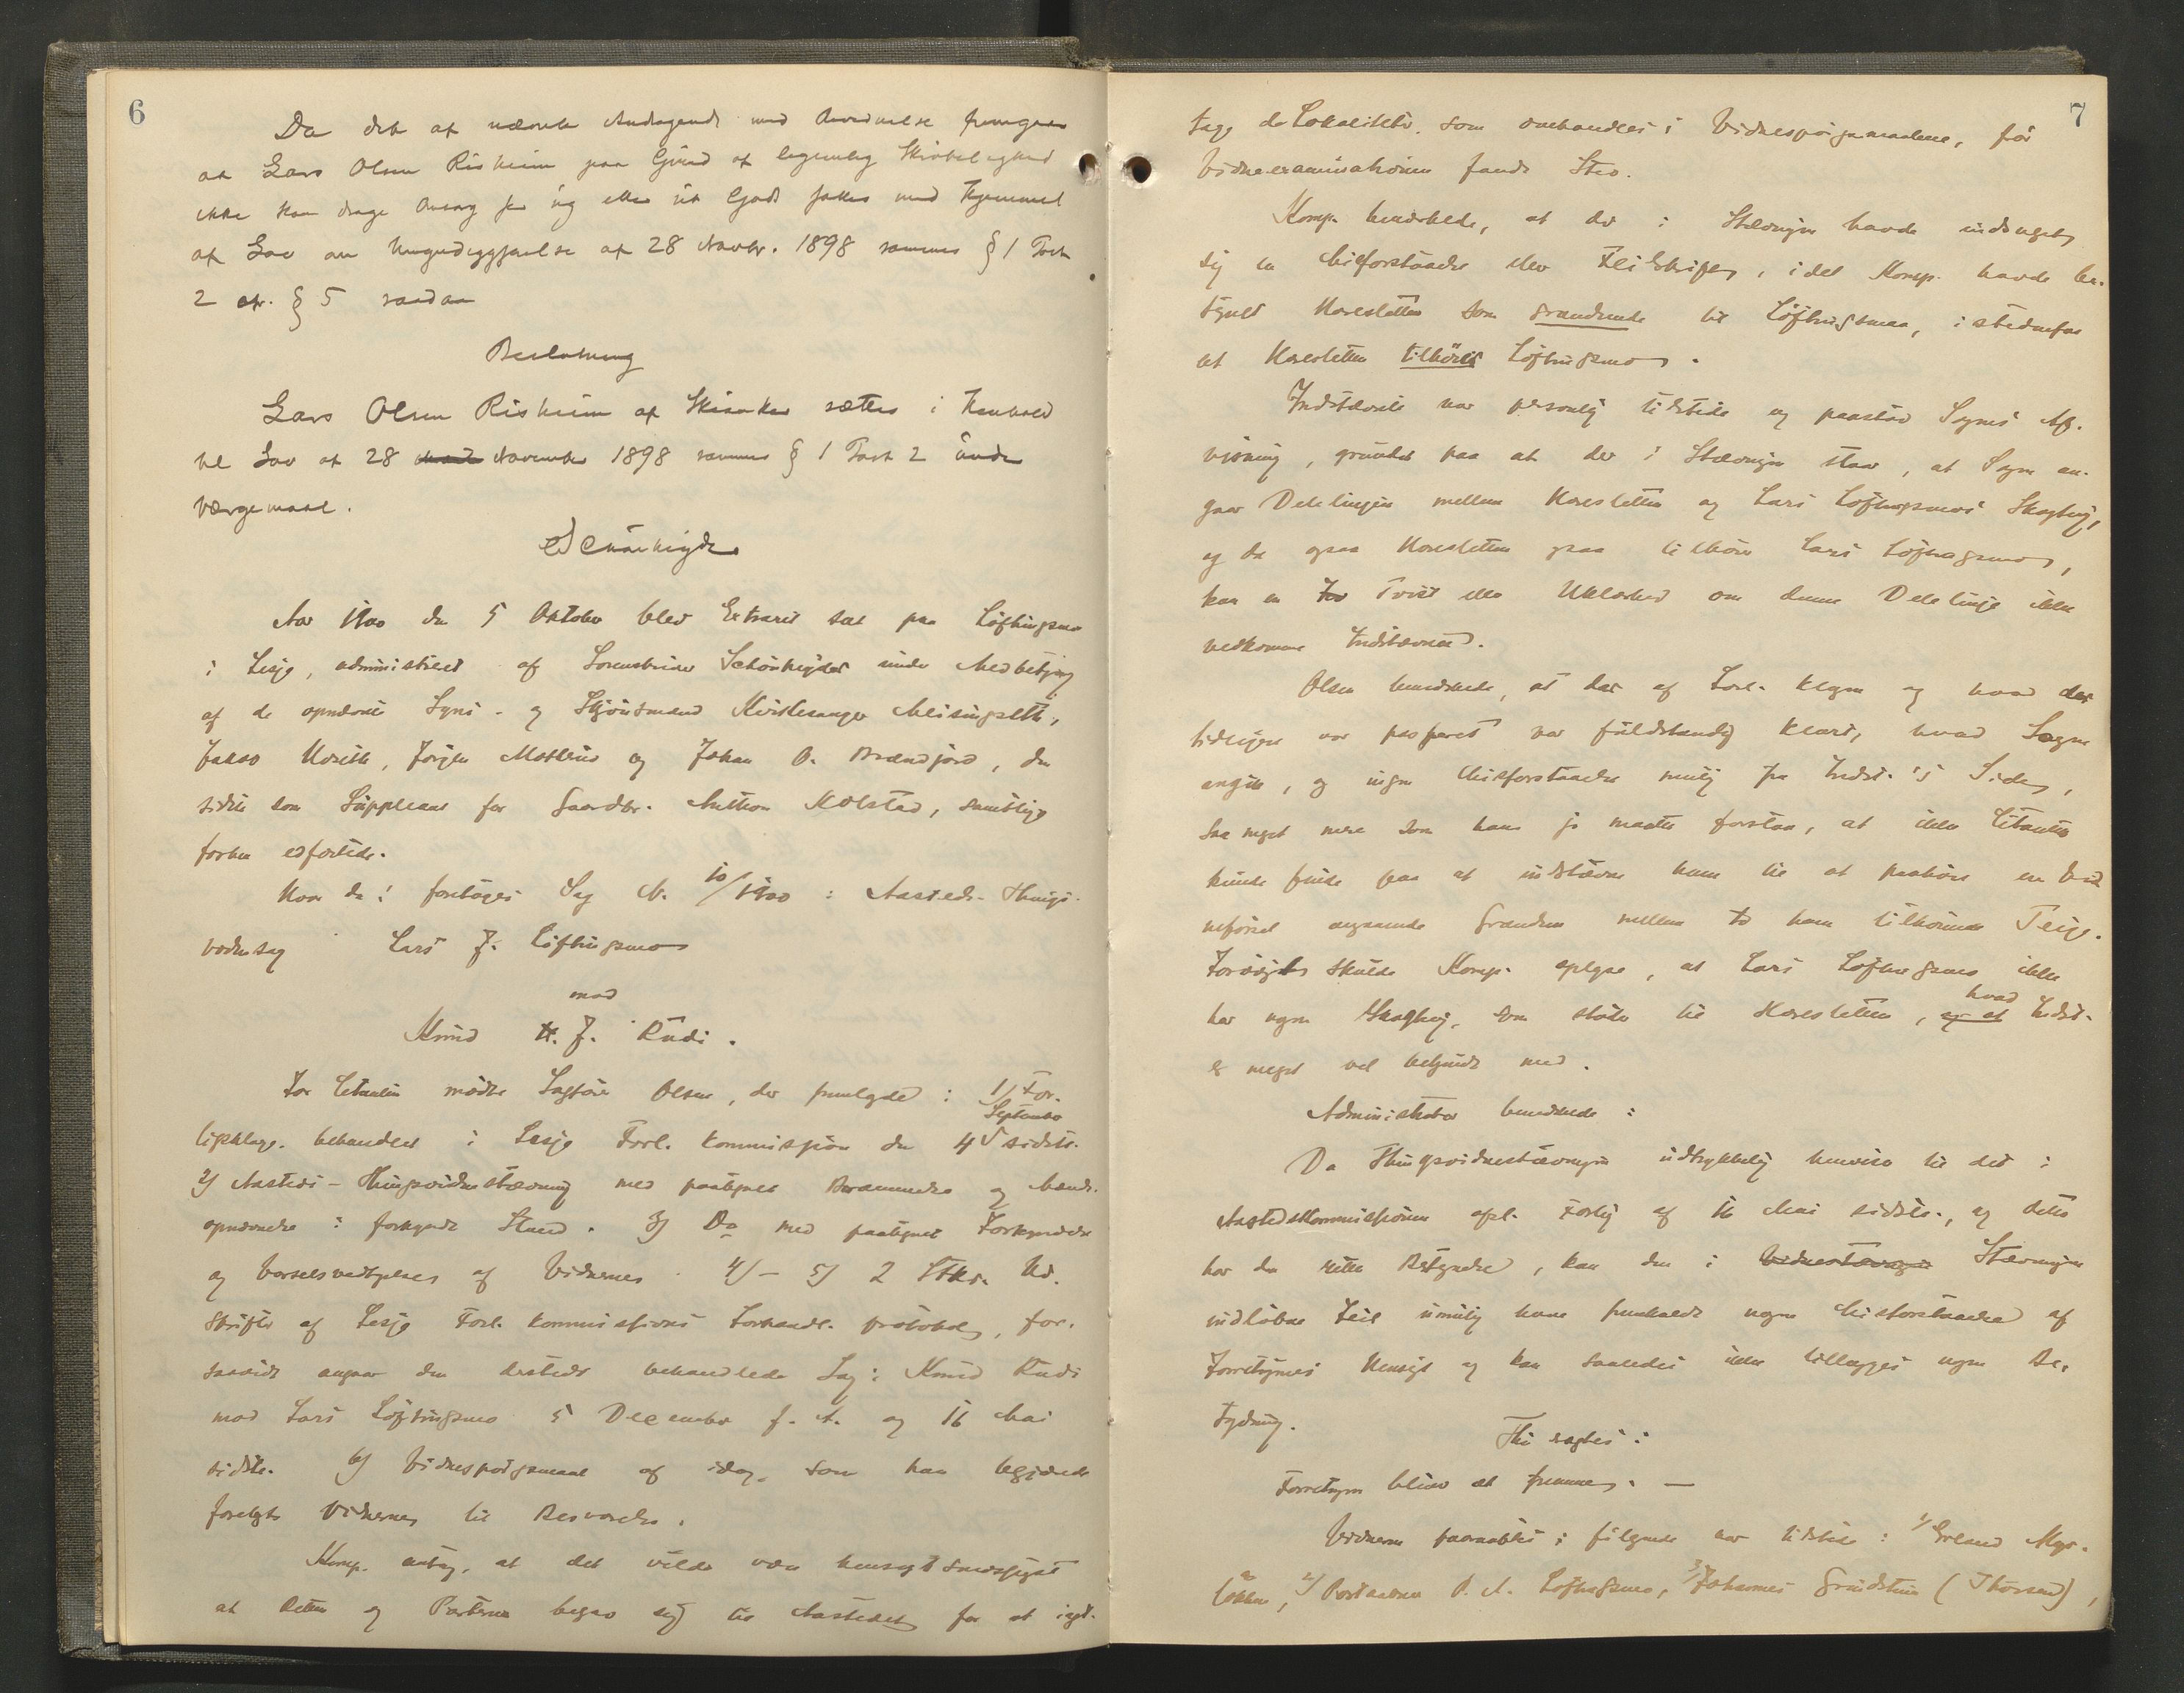 6
Da det af nævnte Andragende med Anvendelse fremgaar
at Lars Olsen Risheim paa Grund af legemlig Skrøbelighed
ikke kan drage Omsorg for sig eller sit Gods sættes med Hjemmel
af Lov om Umyndiggjørelse af 28 Novbr. 1898 sammes § 1 Post
2 cfr. § 5 saadan
Beslutning
Lars Olsen Risheim af Skiaker sættes i Henhold
til Lov af 28 November 1898 sammes § 1 Post 2 under
Værgemaal.
Schönheyder
Aar 1900 den 5 Oktober blev Extraret sat paa Løftingsmo
i Lesje, administreret af Sorenskriver Schönheyder under Medbetjening
af de opnævnte Syns- og Skjønsmænd Kirkesanger Meisingseth,
Jakob Norith, Jørgen Mathus og Johan O. Brændjord, den
sidste som Suppleant for Gaardbr. Anthon Kolstad, samtlige
forhen edfæstede.
Hvor da: foretoges Sag N. 10/1900: Aasteds-Things-
vidnesag Lars J. Løftingsmo
mod
Knud H. J. Rudi.
For Citanten mødte Sagfører Olsen, der fremlagde: 1) For-
ligsklage behandlet i Lesje Forl. kommission den 4 September sidstl.
2) Aasteds-Thingsvidnestævning med paategnet Berammelse og Mænds
opnævnelse i forkyndt Stand. 3) Do med paategnet Forkyndelse
og Varselsvedtagelse af Vidnerne 4) – 5) 2 Stkr. Ud-
skrifter af Lesje Forl. kommissions Forhandl. protokol, for-
saavidt angaar den dersteds behandlede Sag: Knud Rudi
mod Lars Løftingsmo 5 December f. A. og 16 Mai
sidstl. 6) Vidnespørgsmaal af idag, som han begjærede
forelagt Vidnerne til Besvarelse.
Komp. antog, at det vilde være hensigtsmæssigst
at Retten og Parterne begav sig til Aastedet for at iagt-
7
tage de Lokaliteter, som omhandles i Vidnespørgsmaalene, før
Vidneexaminationen fandt Sted.
Komp. bemærkede, at der i Stævningen havde indsneget
sig en Misforstaaelse eller Feilskrift, idet Komp. havde be-
tegnet Haresletten som grændsende til Løftingsmo, istedenfor
at Haresletten tilhører Løftingsmo.
Indstævnte var personlig tilstede og paastod Sagens Af-
visning, grundet paa at der i Stævningen staar, at Sagen an-
gaar Delelinjen mellem Haresletten og Lars Løftingsmos Skogteig,
og da ogsaa Haresletten ogsaa tilhører Lars Løftingsmo,
kan en Tvist eller Uklarhed om denne Delelinje ikke
vedkomme Indstævnte.
Olsen bemærkede, at det af Forl. klagen og hvad der
tidligere var passeret var fuldstændig klart, hvad Sagen
angik, og ingen Misforstaaelse mulig fra Indst.'s Side,
saa meget mere som han jo maatte forstaa, at ikke Citanten
kunde finde paa at indstævne ham til at paahøre en Vid-
neførsel angaaende Grændsen mellem to ham tilhørende Teige.
Forøvrigt skulde Komp. oplyse, at Lars Løftingsmo ikke
har nogen Skogteig, som støder til Haresletten, hvad Indst.
er meget vel bekjendt med.
Administrator bemærkede:
Da Thingsvidnestævningen udtrykkelig henviser til det i
Aastedskommissionen opl. Forlig af 16 Mai sidstl., og dette
har den rette Betegnelse, kan den i Stævningen
indløbne Feil umulig have fremkaldt nogen Misforstaaelse af
Forretningens Hensigt og kan saaledes ikke tillægges nogen Be-
tydning.
Thi sagdes:
Forretningen bliver at fremme. –
Vidnerne paaraabtes; følgende var tilstede: 1) Erland Myr-
løkken, 2) P. A. Løftingsmo, 3) Johannes Grundstuen (Thorsen),